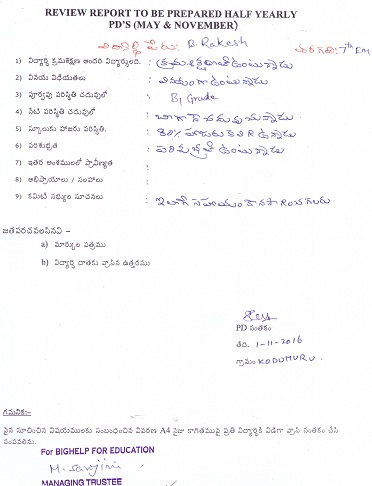 REVIEW REPORT TO BE PREPARED HALF YEARLY
PD'S (MAY & NOVEMBER)
విద్యార్థి పేరు: B. Rakesh తరగతి: 7th EM
1) విద్యార్థి క్రమశిక్షణ అందరి విద్యార్థులందు. : క్రమశిక్షణతో ఉంటున్నాడు
2) వినయ విధేయతలు : వినయంగా ఉంటున్నాడు
3) పూర్వపు పరిస్థితి చదువులో : B1 Grade
4) నేటి పరిస్థితి చదువులో : బాగా చదువుచున్నాడు
5) స్కూలుకు హాజరు పరిస్థితి. : 80%
6) పరిశుభ్రత : పరిశుభ్రతతో ఉంటున్నాడు
7) ఇతర అంశములలో ప్రావీణ్యత :
8) అభిప్రాయాలు / సలహాలు :
9) కమిటీ సభ్యుల సూచనలు : ఇలాగే సహాయం కొనసాగించగలరు.
జతపరచవలసినవి –
a) మార్కుల పత్రము
b) విద్యార్థి దాతకు వ్రాసిన ఉత్తరము
PD సంతకం
తేది. 1-11-2016
గ్రామం KODUMURU.
గమనిక:–
పైన సూచించిన విషయములకు సంబంధించిన వివరణ A4 సైజు కాగితముపై ప్రతి విద్యార్థికి విడిగా వ్రాసి సంతకం చేసి
పంపవలెను.
For BIGHELP FOR EDUCATION
M. Sarojini
MANAGING TRUSTEE